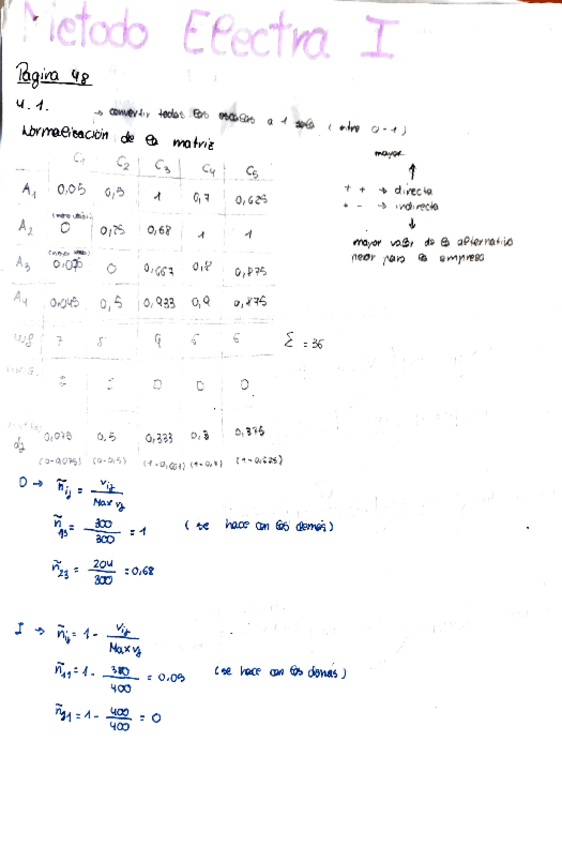 Metodo Electra I
Pagina 48
4.1.
→ convertir todas las escalas a 1 sola (entre 0-1)
Normalización de la matriz
C1 C2 C3 C4 C5
A1 0,05 0,5 1 0,7 0,625
A2 0 0,25 0,68 1 1
A3 0,075 0 0,667 0,8 0,875
A4 0,045 0,5 0,933 0,9 0,875
wj 7 8 9 6 6 Σ = 36
I I D D D
dj 0,075 0,5 0,333 0,3 0,375
(0-0,075) (0-0,5) (1-0,667) (1-0,7) (1-0,625)
mayor
↑
+ + → directa
+ - → indirecta
↓
mayor valor de la alternativa
peor para la empresa
D → ñij = vij / Max vj
ñ13 = 300 / 300 = 1 (se hace con los demás)
ñ23 = 204 / 300 = 0,68
I → ñij = 1 - vij / Max vj
ñ11 = 1 - 380 / 400 = 0,05 (se hace con los demás)
ñ21 = 1 - 400 / 400 = 0